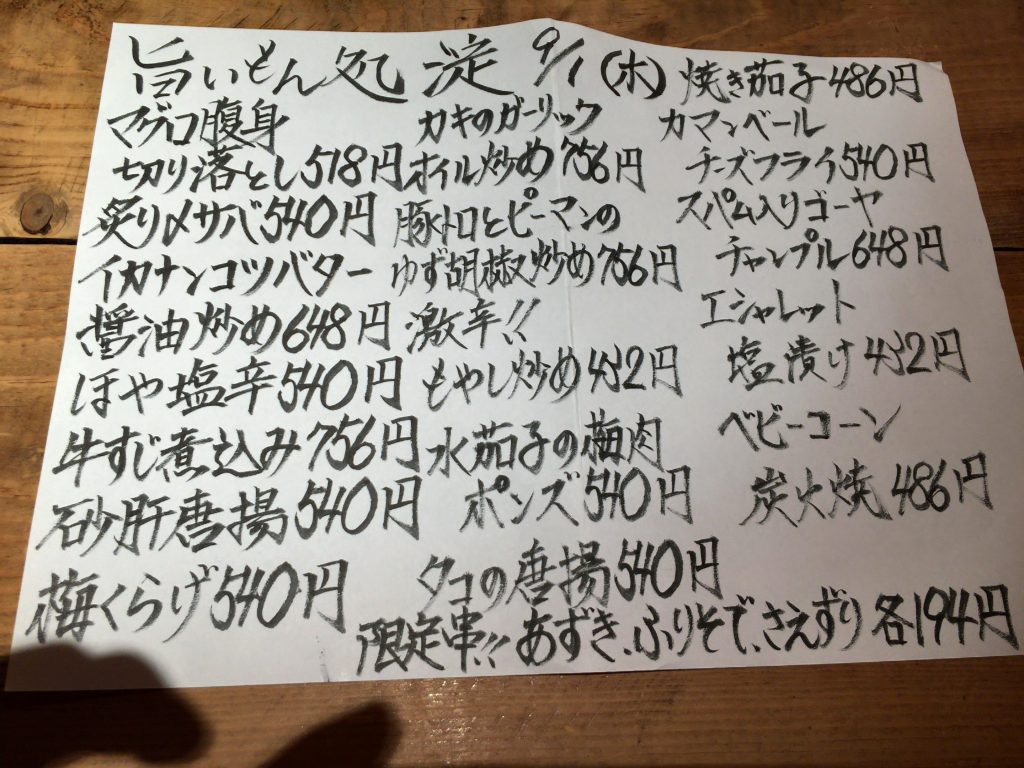 旨いもん処 淀 9/1(木)
マグロ腹身
切り落とし518円
炙り〆サバ540円
イカナンコツバター
醤油炒め648円
ほや塩辛540円
牛すじ煮込み756円
砂肝唐揚540円
梅くらげ540円
カキのガーリック
オイル炒め756円
豚トロとピーマンの
ゆず胡椒炒め756円
激辛!!
もやし炒め432円
水茄子の梅肉
ポンズ540円
タコの唐揚540円
焼き茄子486円
カマンベール
チーズフライ540円
スパム入りゴーヤ
チャンプル648円
エシャレット
塩漬け432円
ベビーコーン
炭火焼486円
限定串!! あずき、ふりそで、さえずり各194円